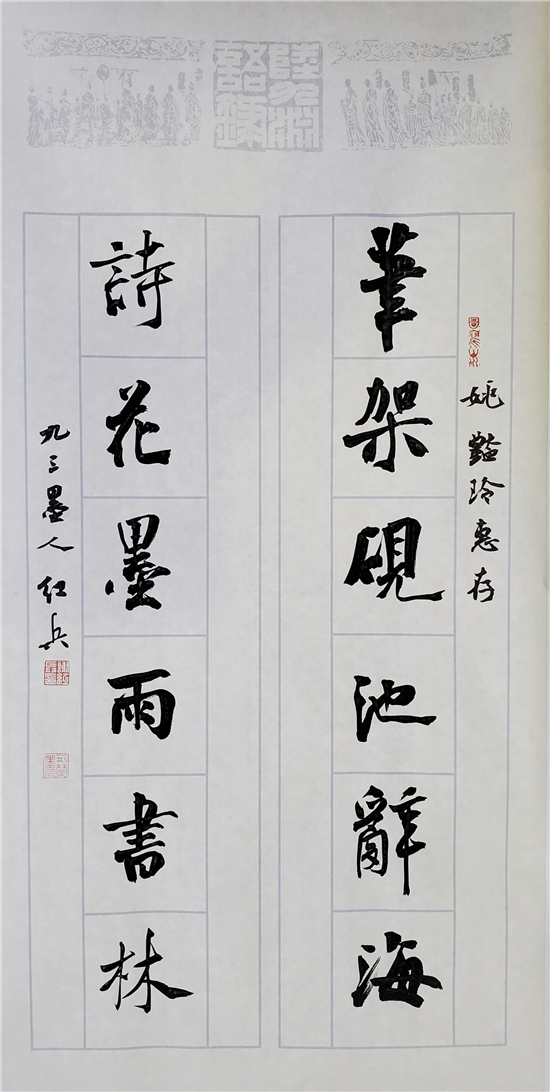 姚豔玲惠存
筆架硯池辭海
詩花墨雨書林
九三墨人紅兵